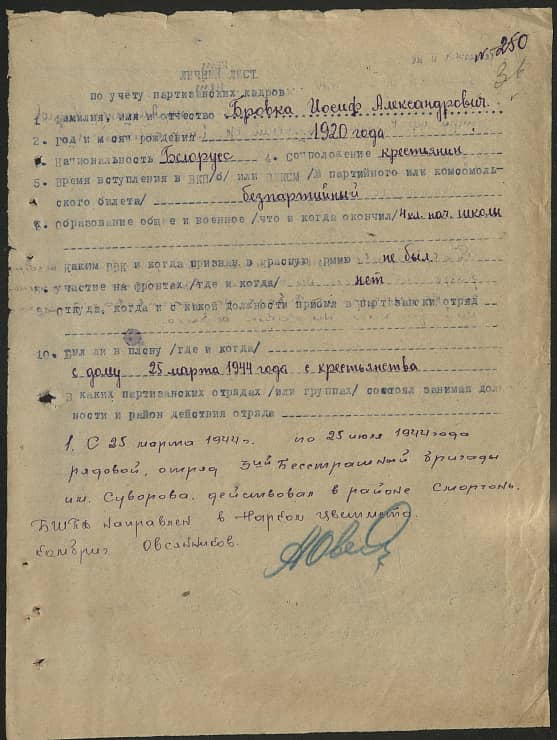 № 250
36
ЛИЧНЫЙ ЛИСТ
по учету партизанских кадров
1. Фамилия, имя и отчество Бровка Иосиф Александрович.
2. Год и месяц рождения 1920 года
Национальность Белорус 4. Соцположение крестьянин
5. Время вступления в ВКП/б/ или ВЛКСМ /№ партийного или комсомоль-
ского билета/ безпартийный
6. Образование общее и военное /что и когда окончил/ 4 кл. нач. школы
Каким РВК и когда призван в красную армию не был.
участие на фронтах /где и когда/ нет
9. откуда, когда и с какой должности прибыл в партизански отряд
10. Был ли в плену /где и когда/
с дому 25 марта 1944 года с крестьянства
В каких партизанских отрядах /или группах/ состоял занимая дол
ности и район действия отряда
1. С 25 марта 1944 г. по 25 июля 1944 года
рядовой, отряд 3ий Бесстрашный бригады
им. Суворова. действовал в районе Сморгонь.
БШПД направлен в Нарком цветмета.
комбриг Овсянников.